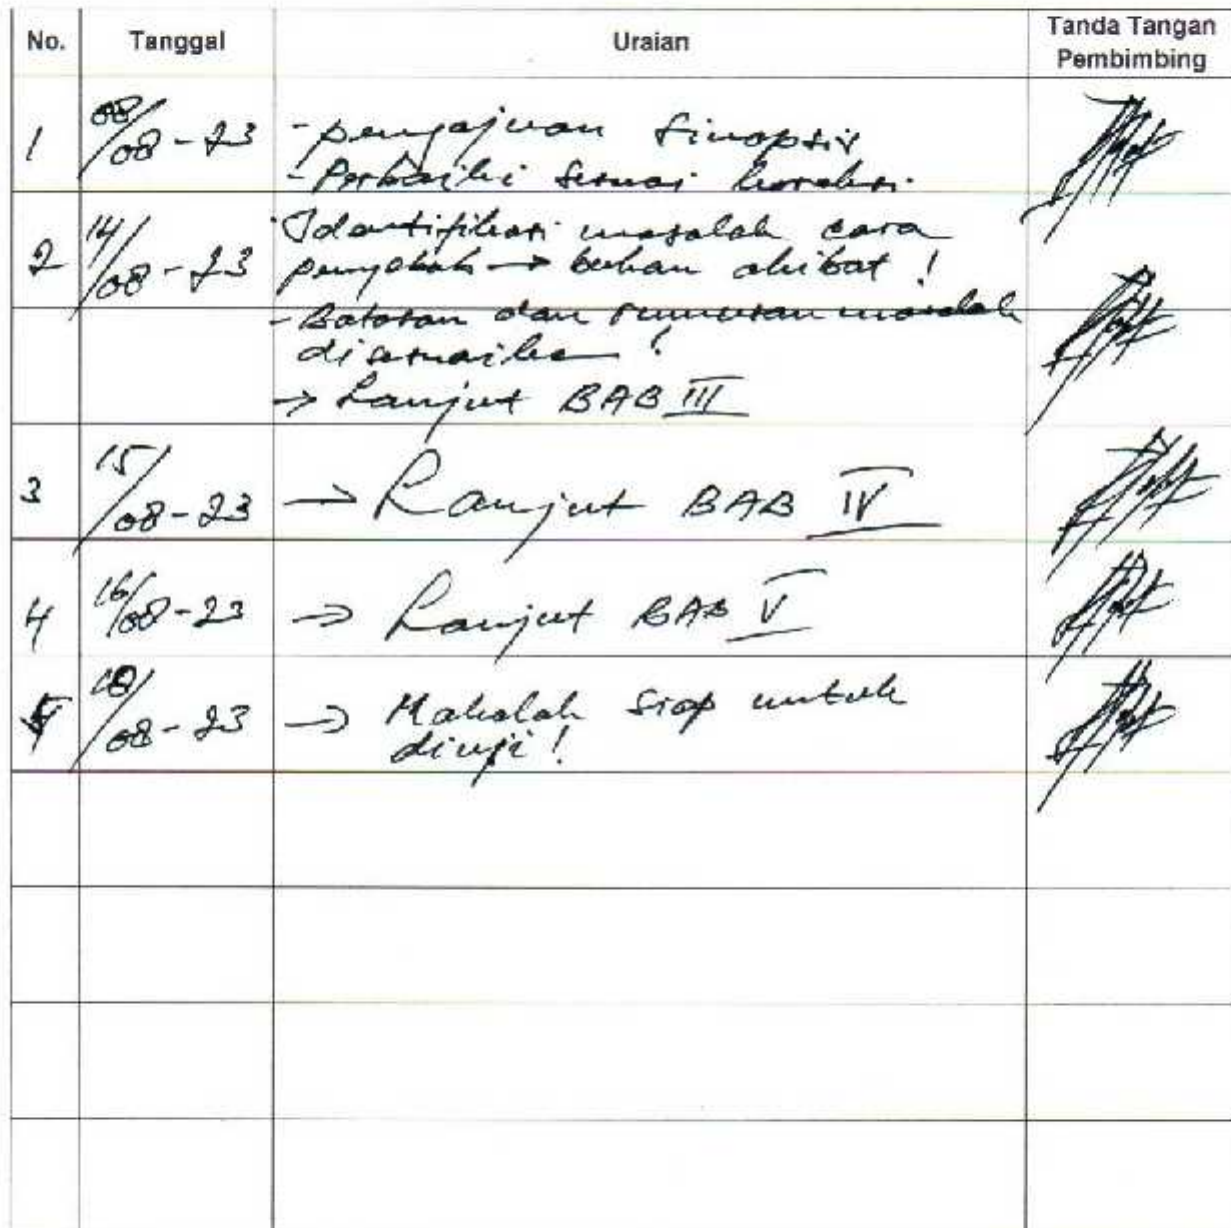 No. Tanggal Uraian Tanda Tangan Pembimbing
1 08/08-23 - pengajuan Sinopsis
- Perbaiki sesuai koreksi.
2 14/08-23 Identifikasi masalah cara
penyebab → bukan akibat !
- Batasan dan rumusan masalah
disesuaikan !
→ Lanjut BAB III
3 15/08-23 → Lanjut BAB IV
4 16/08-23 → Lanjut BAB V
5 18/08-23 → Makalah siap untuk
diuji !